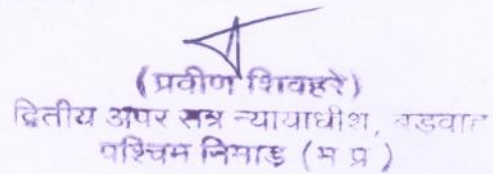 (प्रवीण शिवहरे)
द्वितीय अपर सत्र न्यायाधीश, बडवाह
पश्चिम निमाड (म प्र)